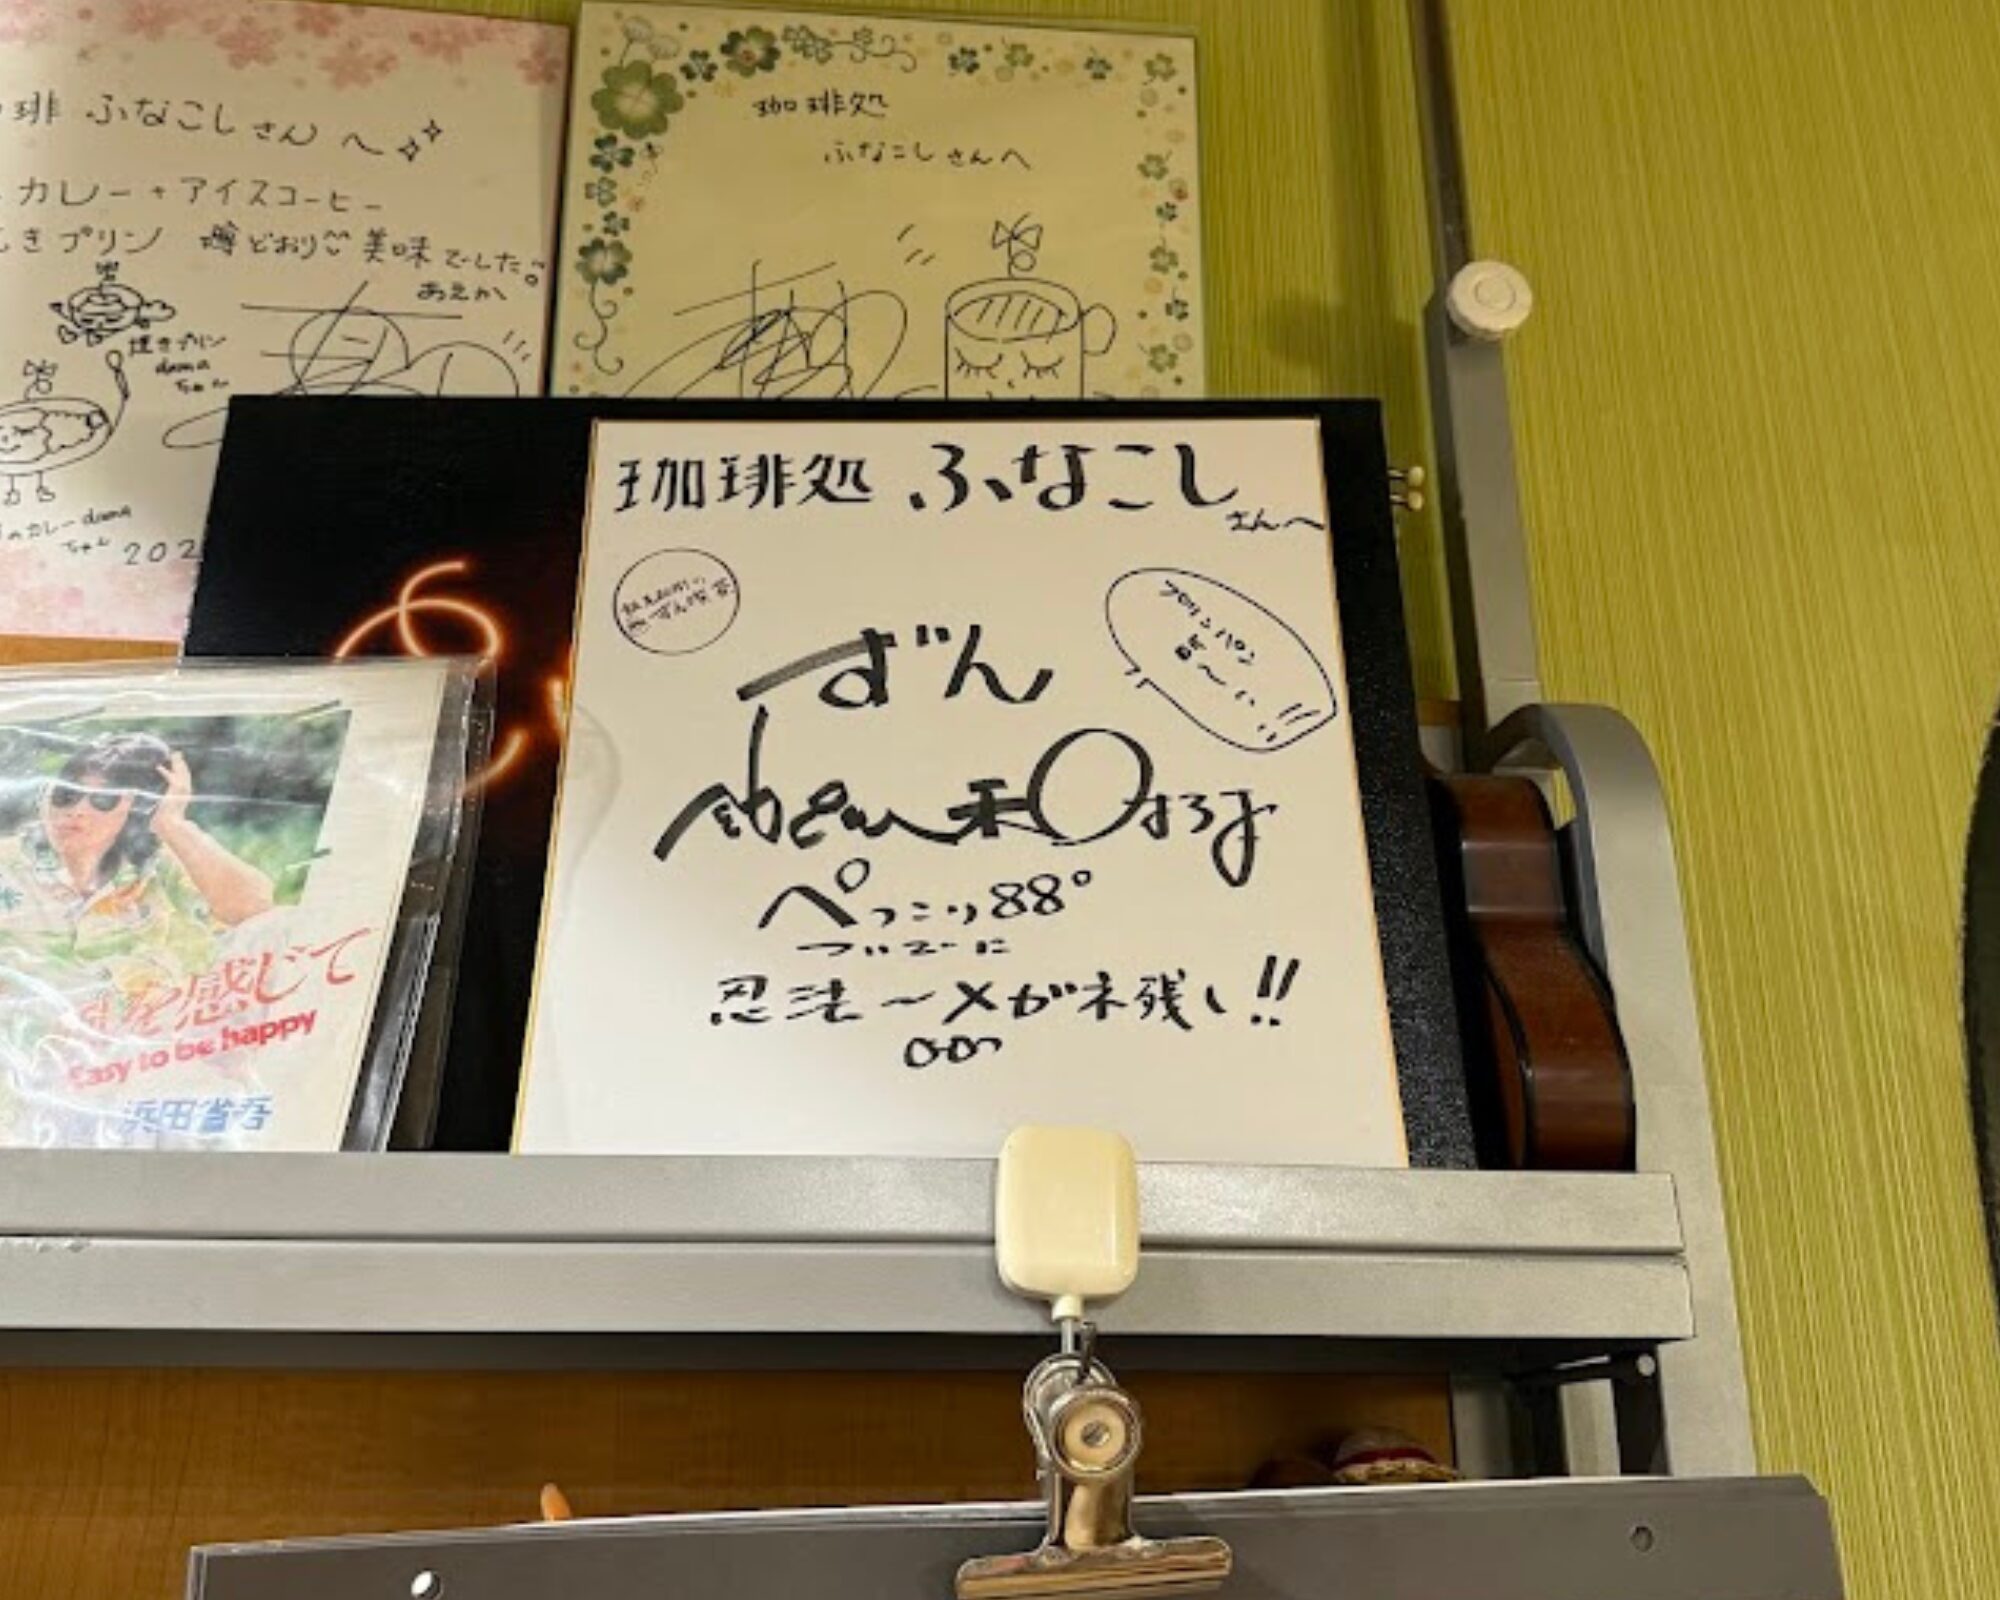 琲 ふなこしさんへ
カレー+アイスコーヒー
きプリン 噂どおり美味でした。
あえか
焼きプリン
dama
ちゃん
カレーdama
ちゃん
202
珈琲処
ふなこしさんへ
珈琲処 ふなこし
さんへ
ずん
飯尾和樹
ぺっこり88°
ついでに
忍法〜メガネ残し!!
を感じて
Easy to be happy
浜田省吾